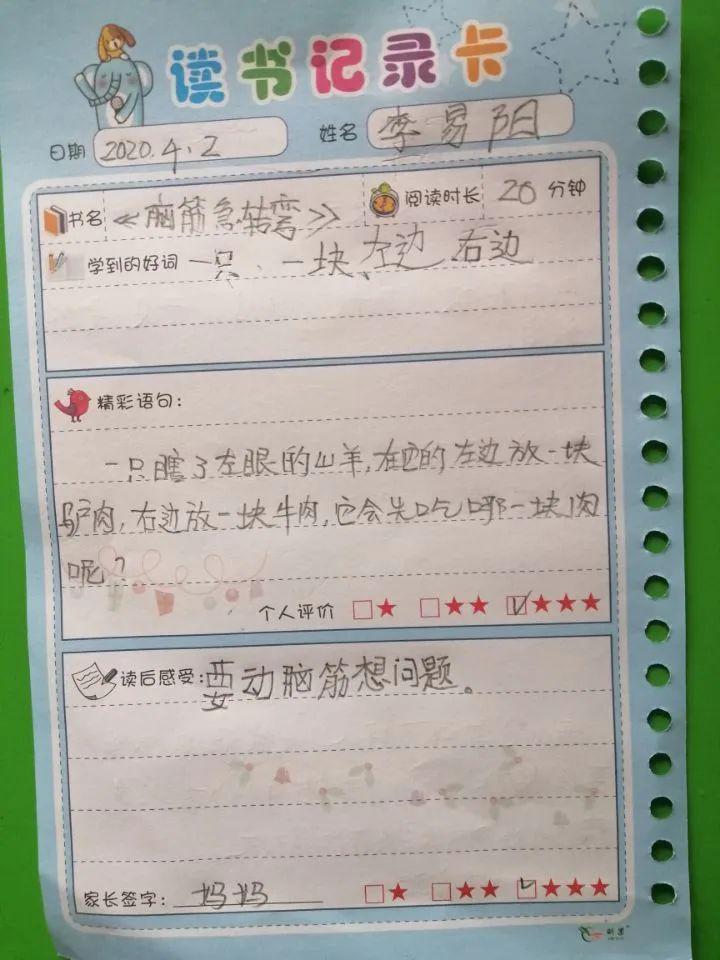 读书记录卡
日期 2020.4.2 姓名 李易阳
书名 《脑筋急转弯》 阅读时长 20 分钟
学到的好词 一只、一块、左边 右边
精彩语句：
一只瞎了左眼的山羊,在它的左边放一块
驴肉,右边放一块牛肉,它会先吃哪一块肉
呢？
个人评价 □★ □★★ ☑★★★
读后感受：要动脑筋想问题。
家长签字： 妈妈 □★ □★★ ☑★★★